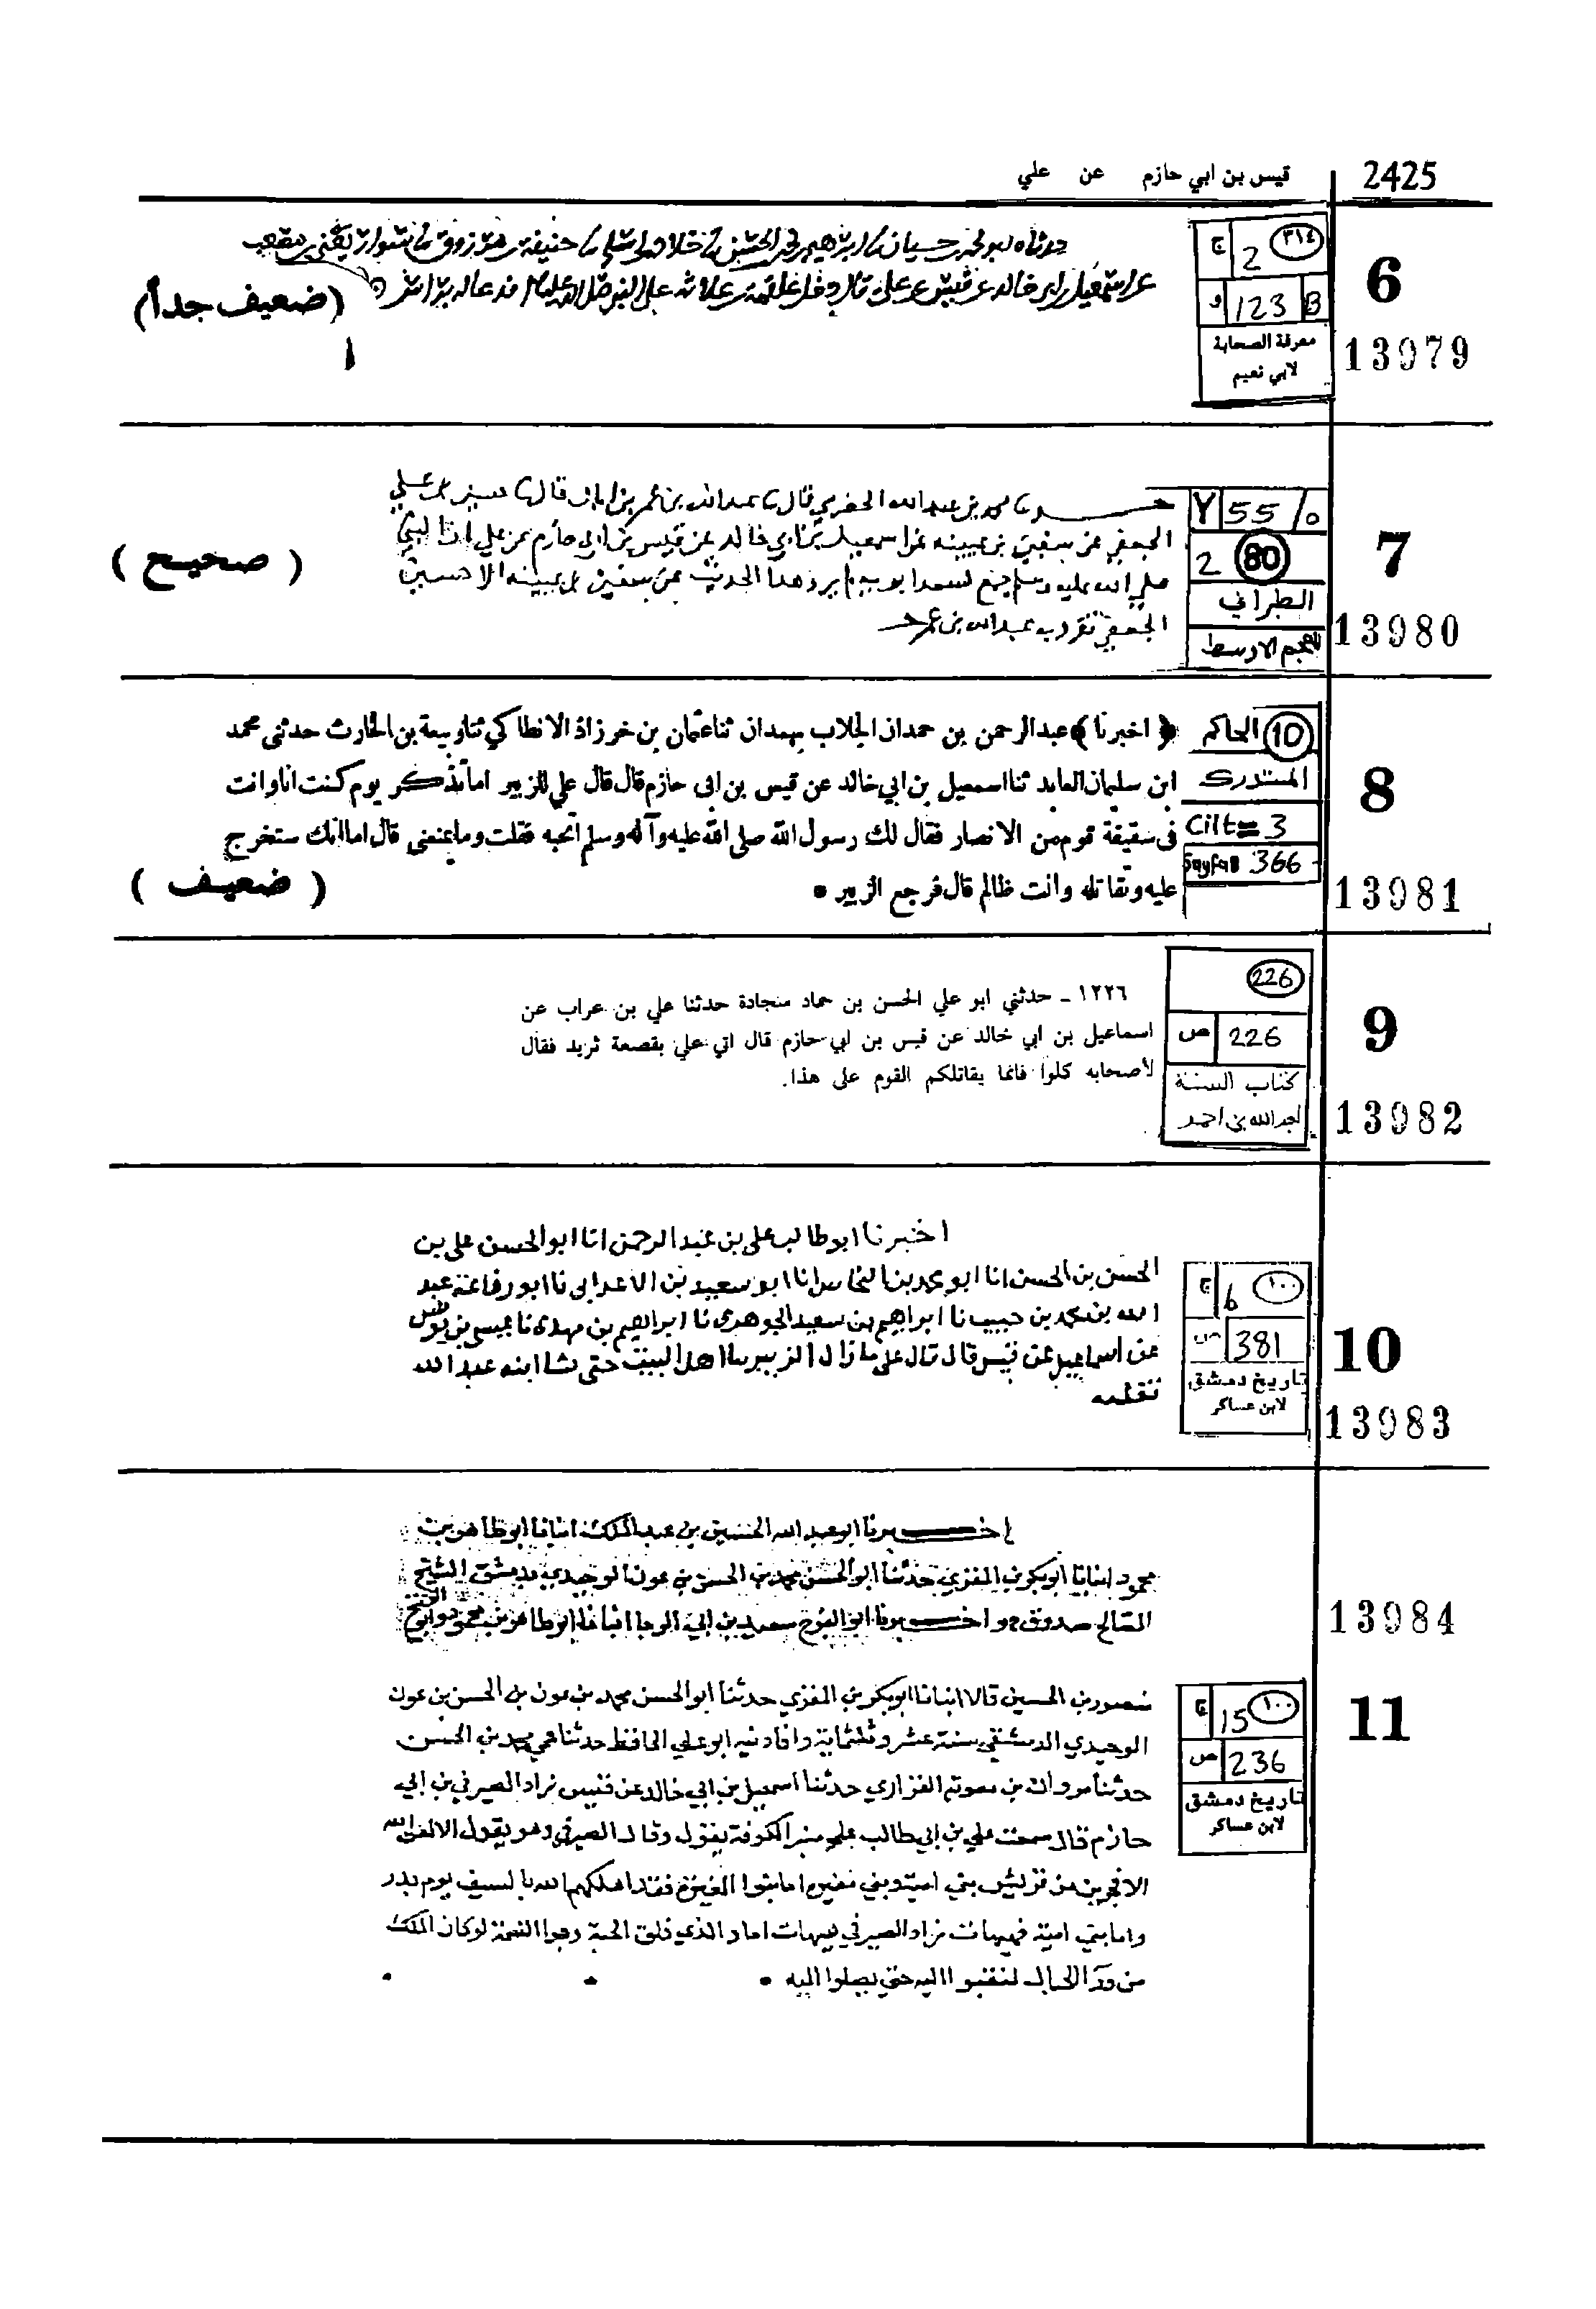 2425
قيس بن ابي حازم عن علي
ج 2 ٣١٤
و 123 B
معرفة الصحابة
لابي نعيم
6
13979
(ضعيف جداً)
عن قيس عن علي قال دخل علقمة بن علاثة على النبي صلى الله عليه فدعا له براس
7
13980
Y 55/0
2 80
الطبراني
المعجم الاوسط
محمد بن عبد الله الحضرمي قال عبد الله بن عمر بن ابان قال حسين بن علي
الجعفي عن سفين بن عيينه عن اسمعيل بن ابي خالد عن قيس بن ابي حازم عن علي ان النبي
صلى الله عليه وسلم جمع لسعد ابويه لم يرو هذا الحديث عن سفين بن عيينه الا حسين
الجعفي تفرد به عبد الله بن عمر
( صحيح )
8
13981
الحاكم 10
المستدرك
Cilt= 3
Sayfa= 366
﴿ اخبرنا ﴾ عبد الرحمن بن حمدان الجلاب بهمدان ثنا عثمان بن خرزاذ الانطاكي ثنا ربيعة بن الحارث حدثنى محمد
ابن سليمان العابد ثنا اسمعيل بن ابي خالد عن قيس بن ابى حازم قال قال علي للزبير اما تذكر يوم كنت انا وانت
فى سقيفة قوم من الانصار فقال لك رسول الله صلى الله عليه وآله وسلم اتحبه فقلت وما يمنعنى قال اما انك ستخرج
عليه وتقاتله وانت ظالم قال فرجع الزبير •
( ضعيف )
9
13982
226
ص 226
كتاب السنة
لعبد الله بن احمد
١٢٢٦ ـ حدثني ابو علي الحسن بن حماد سجادة حدثنا علي بن عراب عن
اسماعيل بن ابي خالد عن قيس بن ابي حازم قال اتي علي بقصعة ثريد فقال
لأصحابه كلوا فانما يقاتلكم القوم على هذا.
10
13983
ج 6 ١٠٠
ص 381
تاريخ دمشق
لابن عساكر
اخبرنا ابو طالب على بن عبد الرحمن انا ابو الحسن على بن
الحسن بن الحسن انا ابو محمد بن النحاس انا ابو سعيد بن الاعرابى نا ابو رفاعة عبد
الله بن محمد بن حبيب نا ابراهيم بن سعيد الجوهرى نا ابراهيم بن مهدى نا عيسى بن يونس
عن اسماعيل عن قيس قال قال على ما زال الزبير منا اهل البيت حتى نشا ابنه عبد الله
فقلبه
13984
11
ج 15 ١٠٠
ص 236
تاريخ دمشق
لابن عساكر
اخبرنا ابو عبد الله الحسين بن عبد الملك انبانا ابو طاهر بن
محمود انبانا ابو بكر بن المقري حدثنا ابو الحسن محمد بن الحسن بن عون الوحيدي بدمشق الشيخ
الصالح صدوق ح واخبرنا ابو الفرج سعيد بن ابي الرجا انبانا ابو طاهر بن محمود وابو الفتح
منصور بن الحسين قالا انبانا ابو بكر بن المقري حدثنا ابو الحسن محمد بن عون بن الحسن بن عون
الوحيدي الدمشقي سنة عشر وثلثماية وافادنيه ابو علي الحافظ حدثنا عمي محمد بن الحسن
حدثنا مروان بن معوية الفزاري حدثنا اسمعيل بن ابي خالد عن قيس زاد الصيرفي بن ابي
حازم قال سمعت علي بن ابي طالب على منبر الكوفة يقول وقال الصيرفي وهو يقول الا لعن الله
الافجرين من قريش بني امية وبني مغيرة اما بنوا المغيرة فقد اهلكهم الله بالسيف يوم بدر
واما بني امية فهيهات زاد الصيرفي هيهات اما والذي فلق الحبة وبرا النسمة لو كان الملك
من ورا الجبال لنقبوا اليه حتى يصلوا اليه •